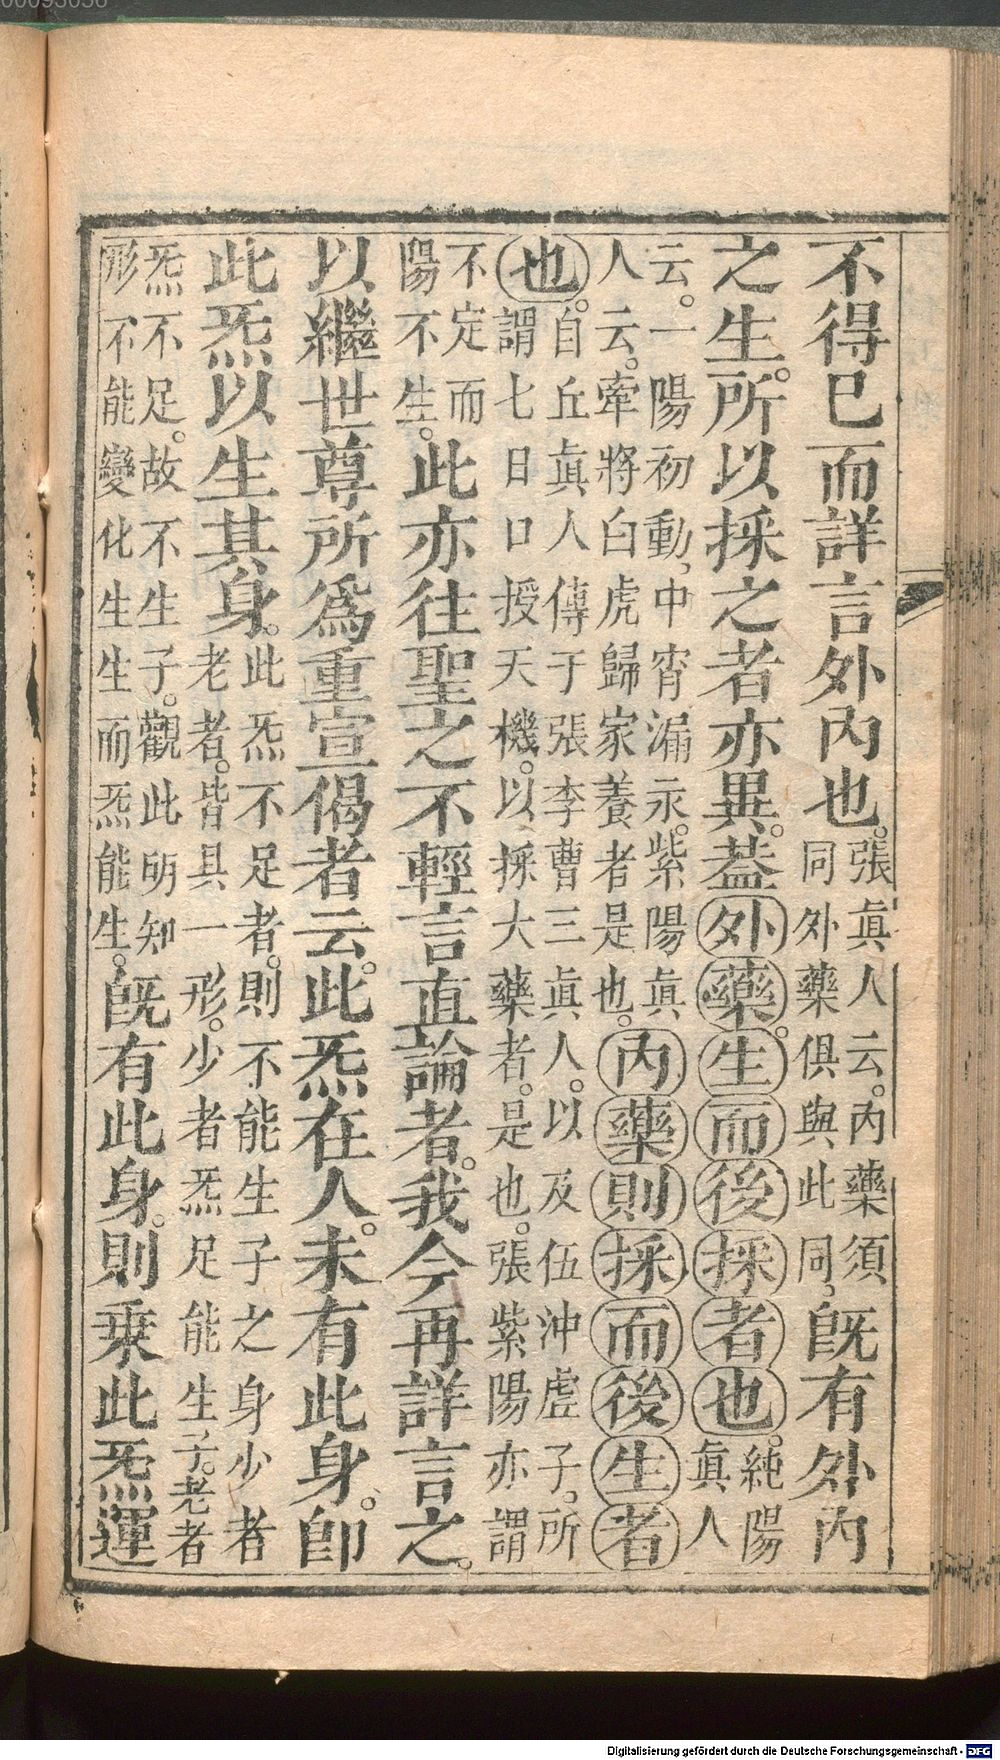 00093036
不得已而詳言外內也。張眞人云。內藥須同外藥俱與此同，旣有外內
之生。所以採之者亦異。葢外藥。生而後採者也。純陽眞人
云。一陽初動，中宵漏永。紫陽眞人云。牽將白虎歸家養者是也。內藥則採而後生者
也。自丘眞人傳于張李曹三眞人。以及伍沖虛子。所謂七日口授天機。以採大藥者。是也。張紫陽亦謂
不定而陽不生。此亦往聖之不輕言直論者。我今再詳言之。
以繼世尊所爲重宣偈者云。此炁在人。未有此身。卽
此炁以生其身。此炁不足者。則不能生子之身少者老者。皆具一形。少者炁足能生子。老者
炁不足。故不生子。觀此明知形不能變化生生而炁能生。旣有此身。則乘此炁運
Digitalisierung gefördert durch die Deutsche Forschungsgemeinschaft - DFG